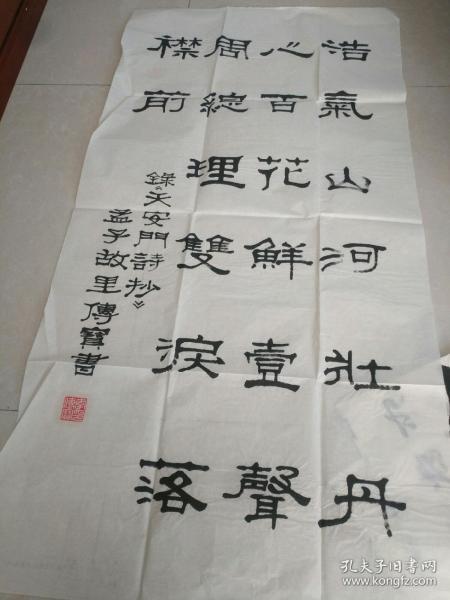 浩氣山河壯丹
心百花鮮壹聲
周總理雙淚落
襟前
錄《天安門詩抄》
孟子故里傳寶書
孔夫子旧书网
www.kongfz.com